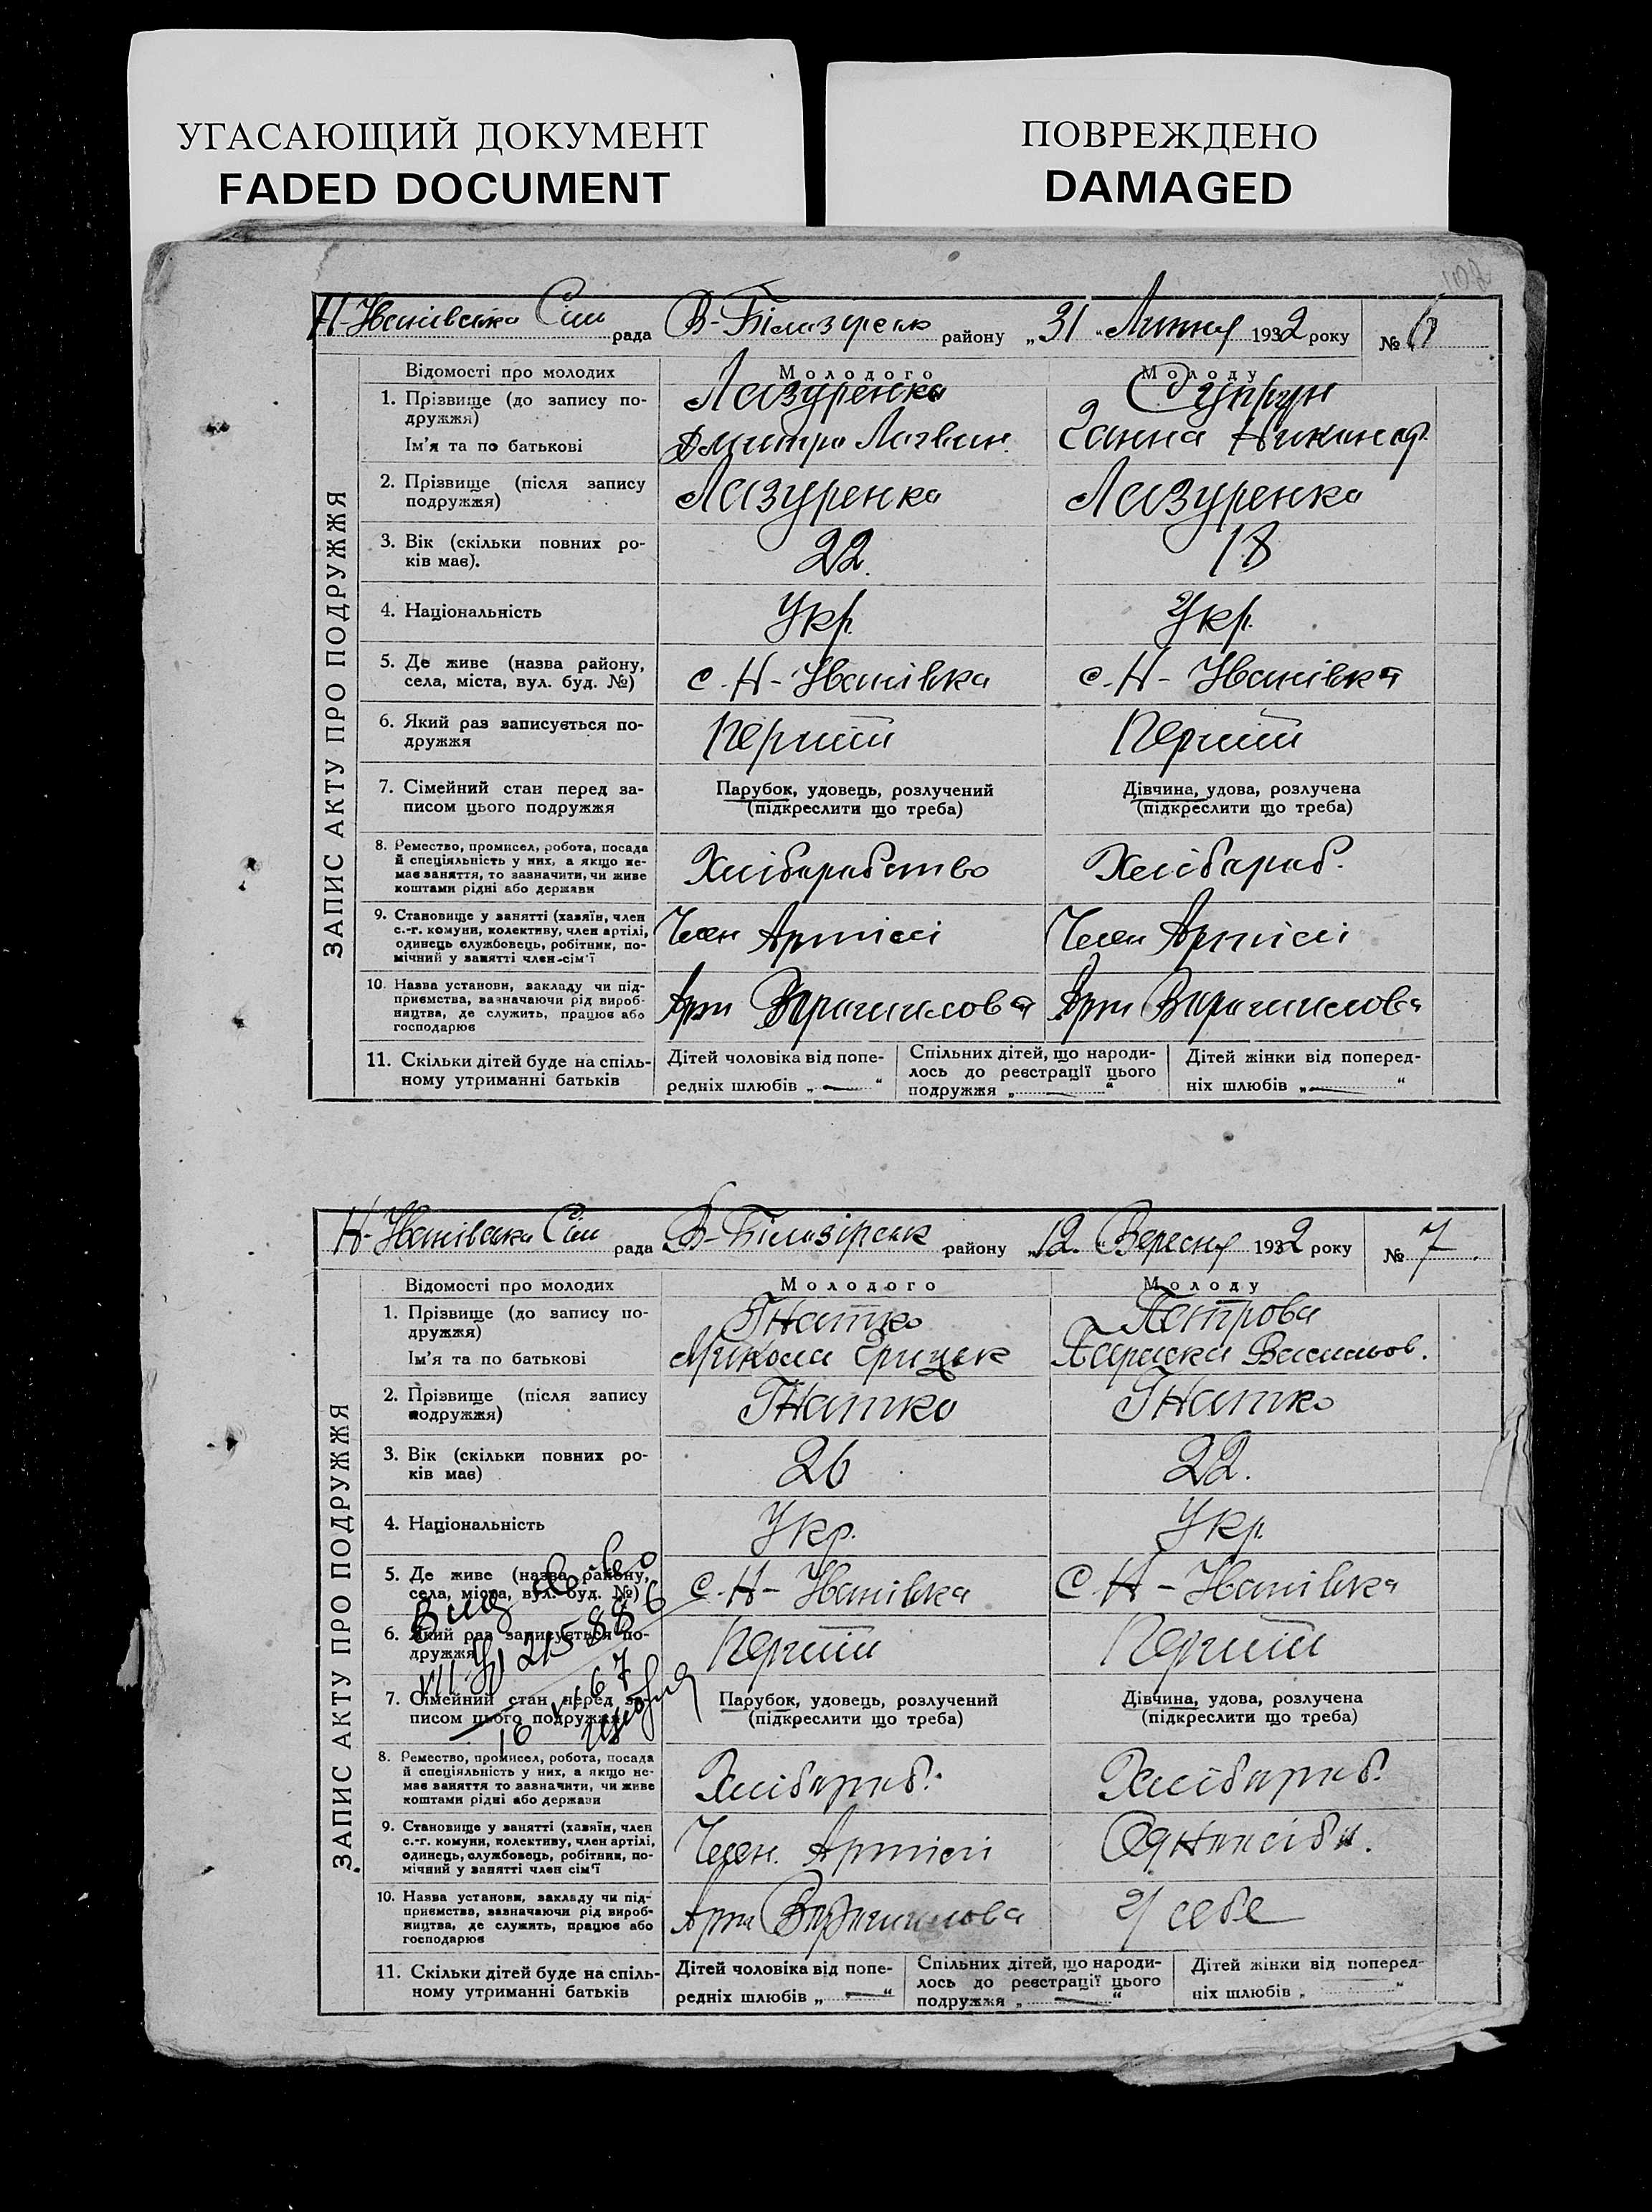 УГАСАЮЩИЙ ДОКУМЕНТ
FADED DOCUMENT
ПОВРЕЖДЕНО
DAMAGED
Н-Іванівська Сіл рада В-Білозірськ району „31“ Липня 1932 року № 6
ЗАПИС АКТУ ПРО ПОДРУЖЖЯ
Відомості про молодих Молодого Молоду
1. Прізвище (до запису по-
дружжя) Лазуренко Супрун
Ім'я та по батькові Дмитро Логвин. Ганна Никиноф.
2. Прізвище (після запису
подружжя) Лазуренко Лазуренко
3. Вік (скільки повних ро-
ків має). 22. 18
4. Національність Укр. Укр.
5. Де живе (назва району,
села, міста, вул. буд. №) с. Н-Іванівка с. Н-Іванівка
6. Який раз записується по-
дружжя Перший Перший
7. Сімейний стан перед за-
писом цього подружжя
Парубок, удовець, розлучений
(підкреслити що треба)
Дівчина, удова, розлучена
(підкреслити що треба)
8. Ремество, промисел, робота, посада
й спеціяльність у них, а якщо не-
має заняття, то зазначити, чи живе
коштами рідні або держави
Хліборобство Хлібороб.
9. Становище у занятті (хазяїн, член
с.-г. комуни, колективу, член артілі,
одинець службовець, робітник, по-
мічний у занятті член-сім'ї
Член Артілі Член Артілі
10. Назва установи, закладу чи під-
приємства, зазначаючи рід вироб-
ництва, де служить, працює або
господарює
Арт Ворошилова Арт Ворошилова
11. Скільки дітей буде на спіль-
ному утриманні батьків
Дітей чоловіка від попе-
редніх шлюбів „—“
Спільних дітей, що народи-
лось до реєстрації цього
подружжя „—“
Дітей жінки від поперед-
ніх шлюбів „—“
Н-Іванівська Сіл рада В-Білозірськ району „12“ Вересня 1932 року № 7
ЗАПИС АКТУ ПРО ПОДРУЖЖЯ
Відомості про молодих Молодого Молоду
1. Прізвище (до запису по-
дружжя) Гнатко Петрова
Ім'я та по батькові Микола Грицьк Параска Васильов.
2. Прізвище (після запису
подружжя) Гнатко Гнатко
3. Вік (скільки повних ро-
ків має) 26 22.
4. Національність Укр. Укр.
5. Де живе (назва району,
села, міста, вул. буд. №) с. Н-Іванівка с. Н-Іванівка
6. Який раз записується по-
дружжя Перший Перший
7. Сімейний стан перед за-
писом цього подружжя
Парубок, удовець, розлучений
(підкреслити що треба)
Дівчина, удова, розлучена
(підкреслити що треба)
8. Ремество, промисел, робота, посада
й спеціяльність у них, а якщо не-
має заняття то зазначити, чи живе
коштами рідні або держави
Хлібороб. Хлібороб.
9. Становище у занятті (хазяїн, член
с.-г. комуни, колективу, член артілі,
одинець, службовець, робітник, по-
мічний у занятті член сім'ї
Член. Артілі Одноосібн.
10. Назва установи, закладу чи під-
приємства, зазначаючи рід вироб-
ництва, де служить, працює або
господарює
Арт Ворошилова У себе
11. Скільки дітей буде на спіль-
ному утриманні батьків
Дітей чоловіка від попе-
редніх шлюбів „—“
Спільних дітей, що народи-
лось до реєстрації цього
подружжя „—“
Дітей жінки від поперед-
ніх шлюбів „ “